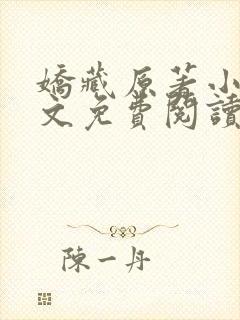 嬌藏原著小
文免費閱讀
陳一丹